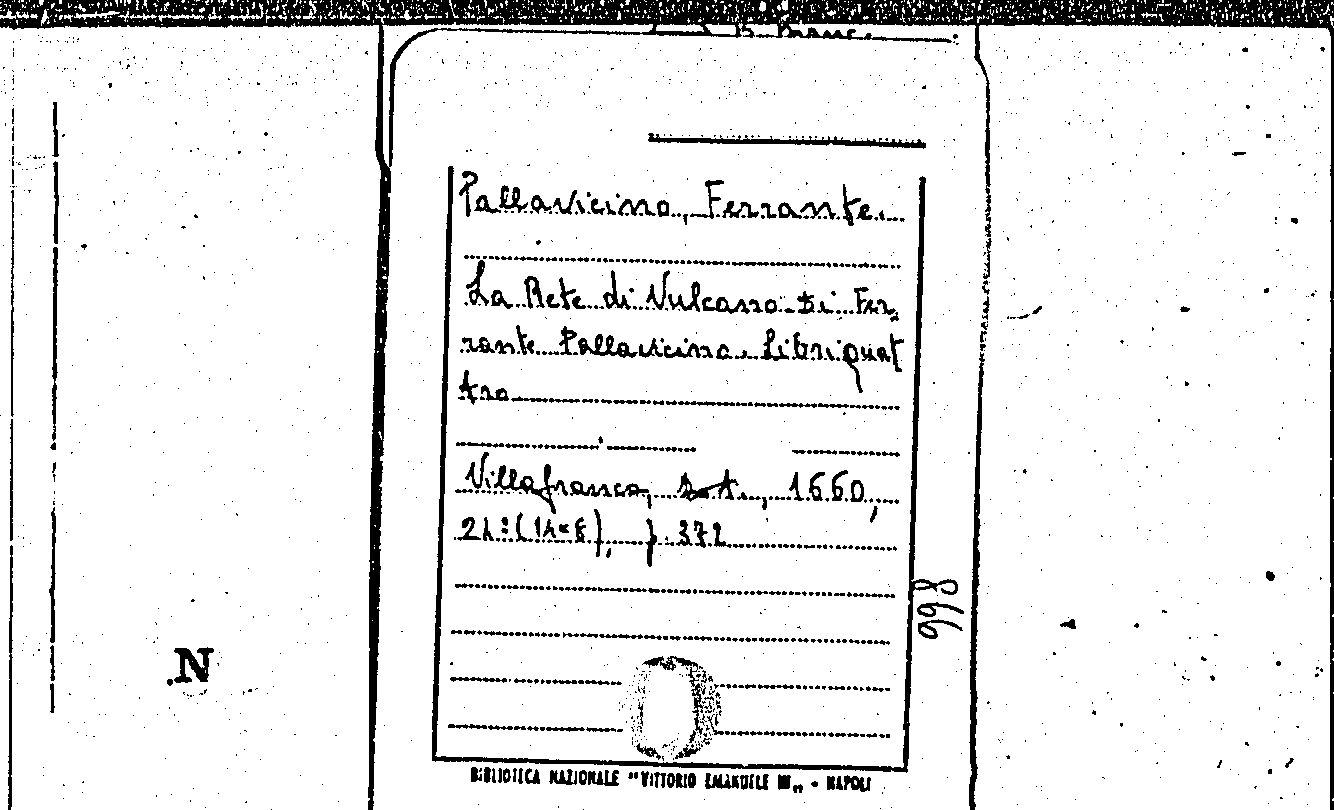 B. Branc.
Pallavicino, Ferrante.
La Rete di Vulcano di Fer-
rante Pallavicino. Libri quat
tro
Villafranca, s.t., 1660,
24º (14×8), p. 372
998
.N
BIBLIOTECA NAZIONALE "VITTORIO EMANUELE III„ - NAPOLI